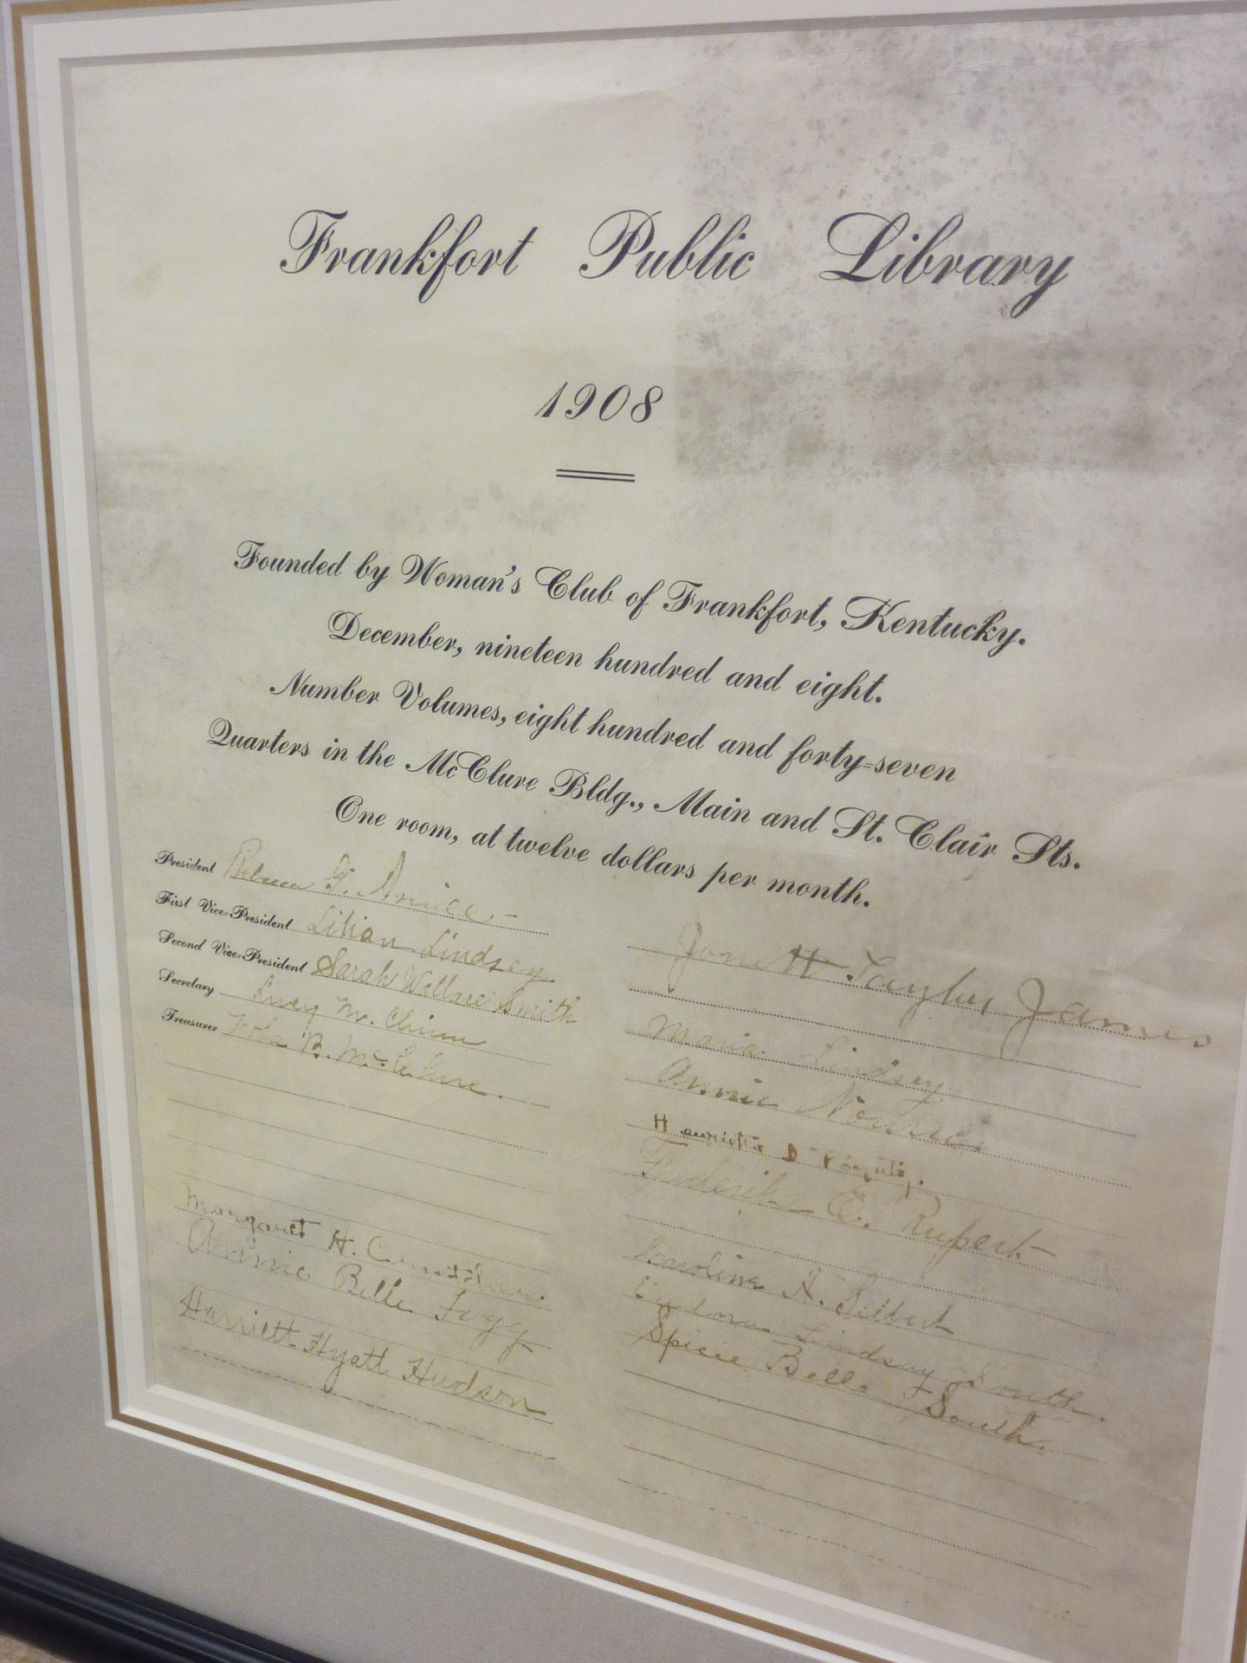 Frankfort Public Library
1908
Founded by Woman's Club of Frankfort, Kentucky.
December, nineteen hundred and eight.
Number Volumes, eight hundred and forty-seven
Quarters in the McClure Bldg., Main and St. Clair Sts.
One room, at twelve dollars per month.
President G.
First Vice-President Lilian Lindsey
Second Vice-President Sarah Wallace Smith
Secretary Lucy M.
Treasurer B. McClure.
Margaret H.
Annie Belle Fogg
Harriett Hyatt Hudson
Taylor James
Maria Lindsey
Annie
D
E. Rupert
Caroline A.
Eudora Lindsay South.
Spicie Belle South.